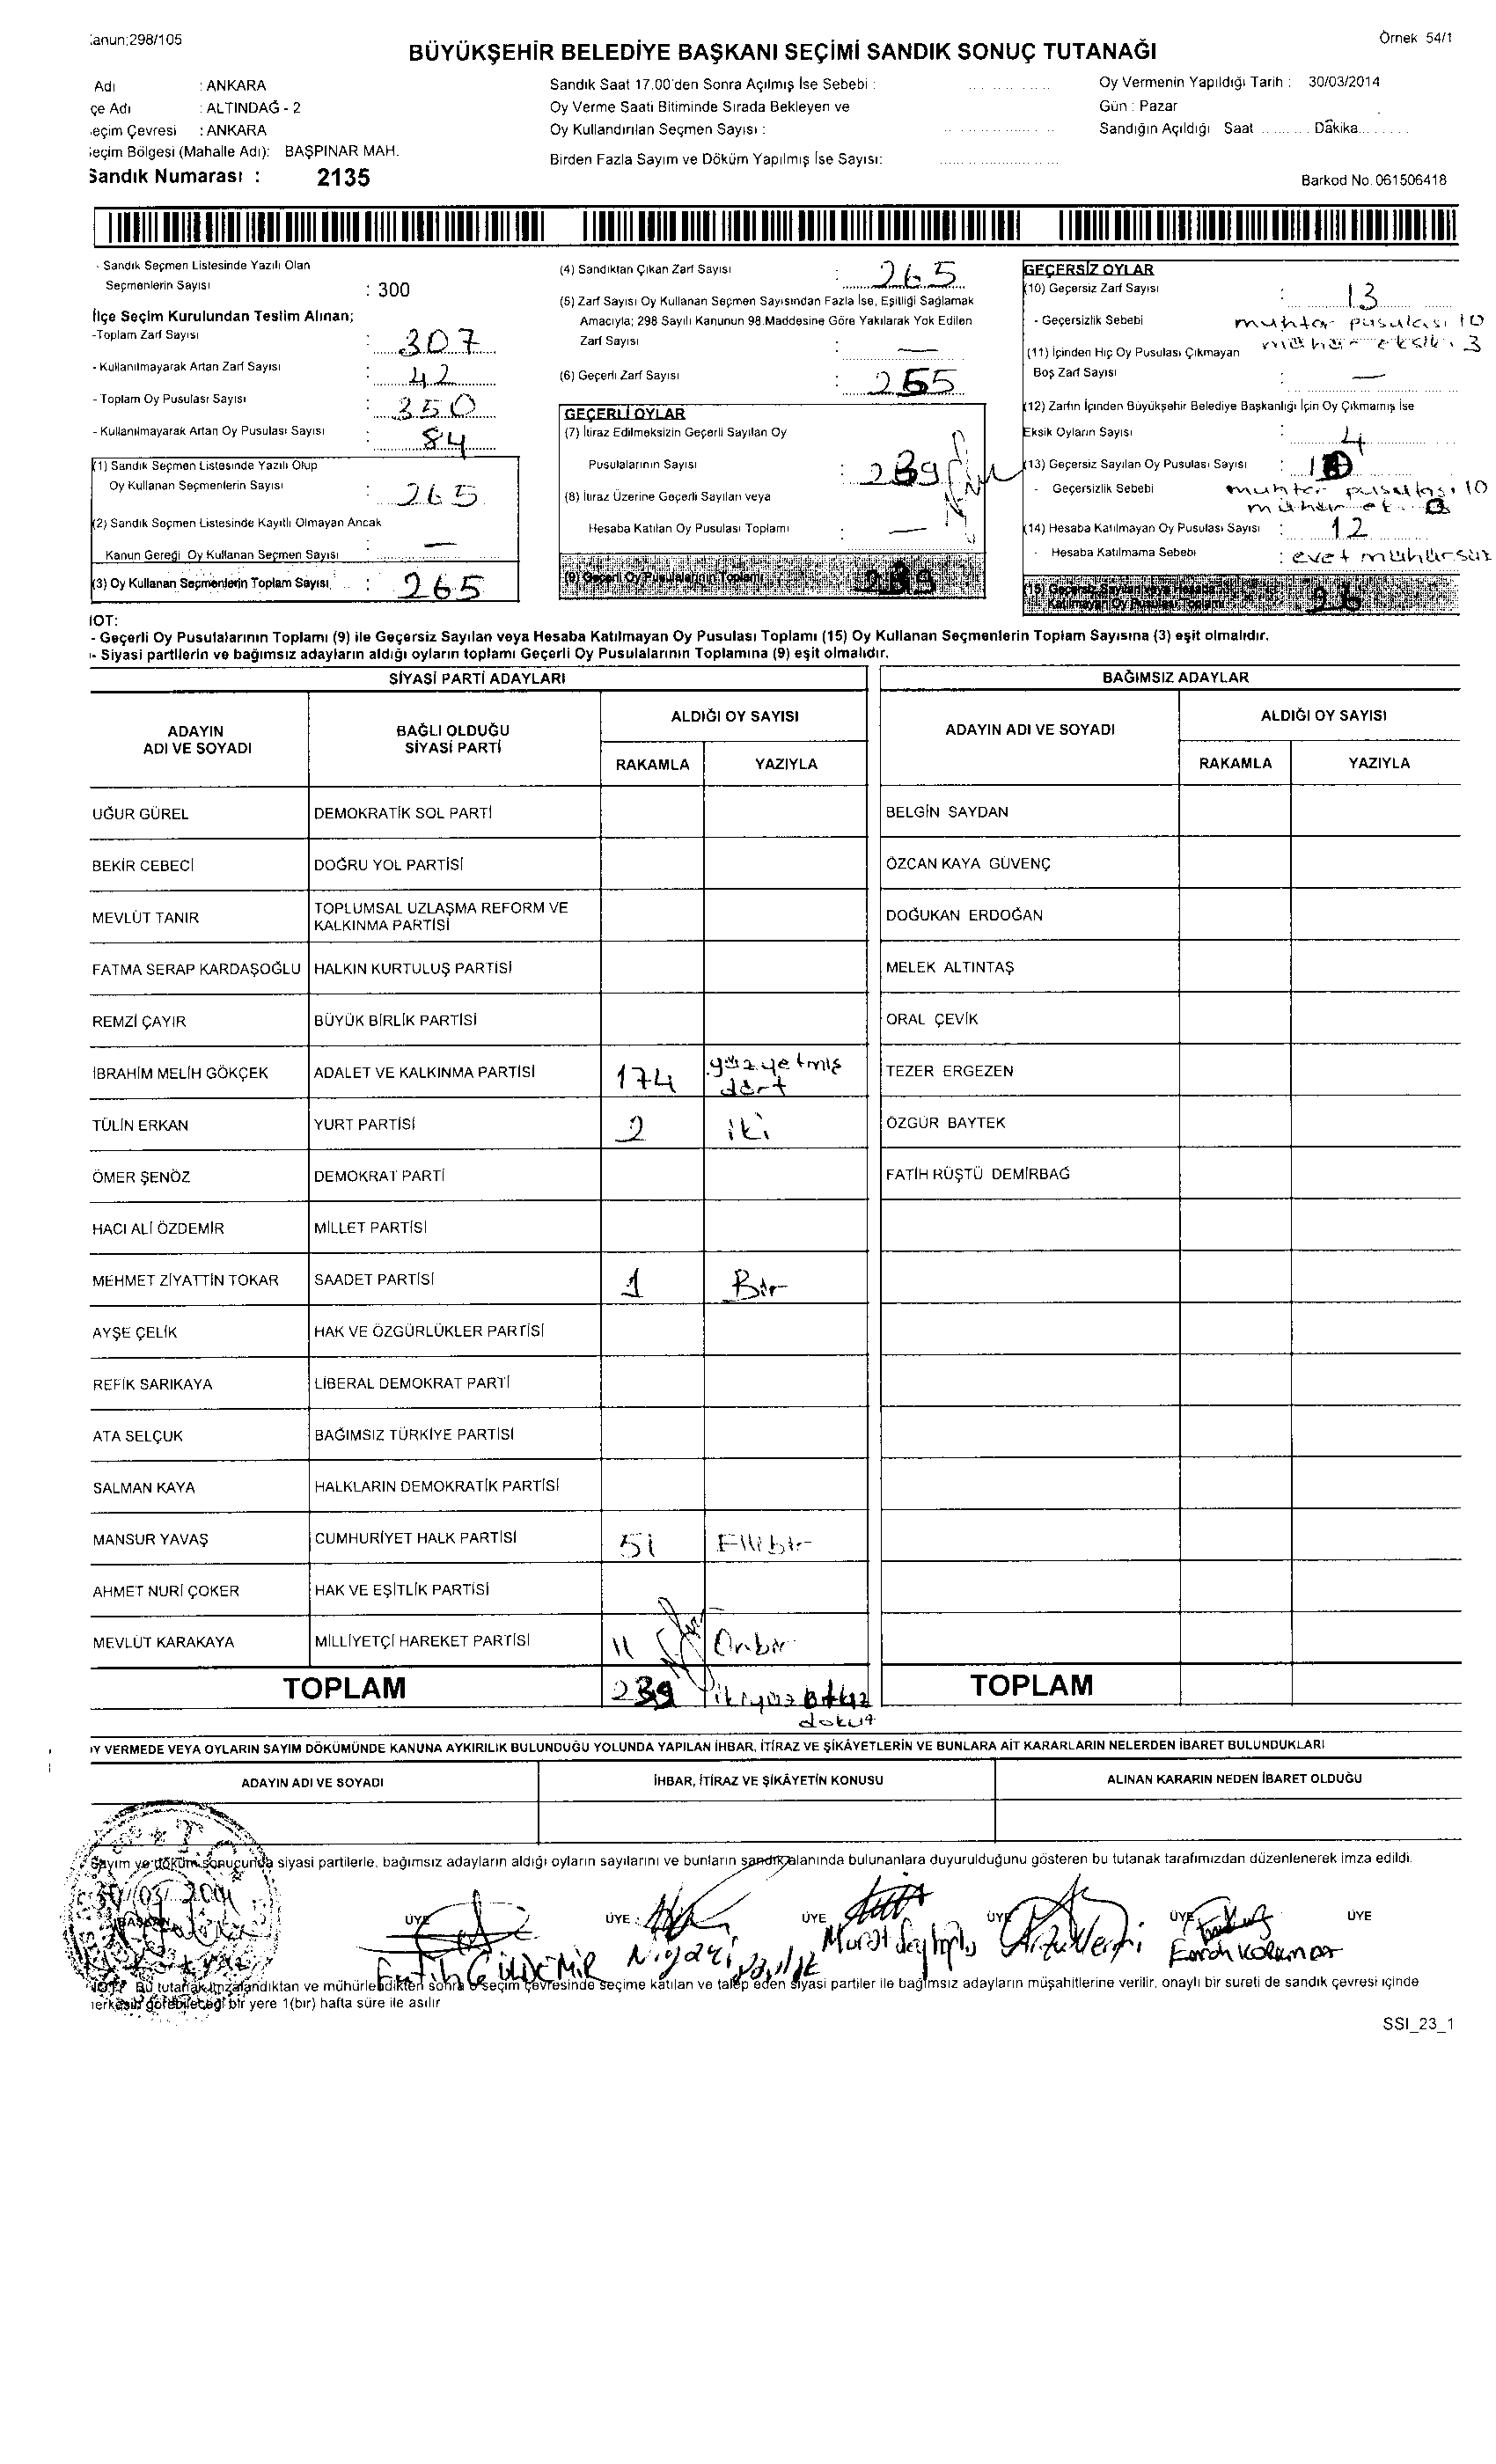 anun:298/105
Örnek 54/1
BÜYÜKŞEHİR BELEDİYE BAŞKANI SEÇİMİ SANDIK SONUÇ TUTANAĞI
Adı : ANKARA
çe Adı : ALTINDAĞ - 2
eçim Çevresi : ANKARA
eçim Bölgesi (Mahalle Adı): BAŞPINAR MAH.
Sandık Numarası : 2135
Sandık Saat 17.00'den Sonra Açılmış İse Sebebi :
Oy Verme Saati Bitiminde Sırada Bekleyen ve
Oy Kullandırılan Seçmen Sayısı :
Birden Fazla Sayım ve Döküm Yapılmış İse Sayısı:
Oy Vermenin Yapıldığı Tarih : 30/03/2014
Gün : Pazar
Sandığın Açıldığı Saat .......... Dakika..........
Barkod No.061506418
- Sandık Seçmen Listesinde Yazılı Olan
Seçmenlerin Sayısı : 300
İlçe Seçim Kurulundan Teslim Alınan;
-Toplam Zarf Sayısı : 307
- Kullanılmayarak Artan Zarf Sayısı : 42
- Toplam Oy Pusulası Sayısı : 350
- Kullanılmayarak Artan Oy Pusulası Sayısı : 84
(1) Sandık Seçmen Listesinde Yazılı Olup
Oy Kullanan Seçmenlerin Sayısı : 265
(2) Sandık Seçmen Listesinde Kayıtlı Olmayan Ancak
Kanun Gereği Oy Kullanan Seçmen Sayısı : —
(3) Oy Kullanan Seçmenlerin Toplam Sayısı : 265
(4) Sandıktan Çıkan Zarf Sayısı : 265
(5) Zarf Sayısı Oy Kullanan Seçmen Sayısından Fazla İse, Eşitliği Sağlamak
Amacıyla; 298 Sayılı Kanunun 98.Maddesine Göre Yakılarak Yok Edilen
Zarf Sayısı : —
(6) Geçerli Zarf Sayısı : 265
GEÇERLİ OYLAR
(7) İtiraz Edilmeksizin Geçerli Sayılan Oy
Pusulalarının Sayısı : 239
(8) İtiraz Üzerine Geçerli Sayılan veya
Hesaba Katılan Oy Pusulası Toplamı : —
(9) Geçerli Oy Pusulalarının Toplamı 239
GEÇERSİZ OYLAR
(10) Geçersiz Zarf Sayısı : 13
- Geçersizlik Sebebi muhtar pusulası 10
mühür eksik 3
(11) İçinden Hiç Oy Pusulası Çıkmayan
Boş Zarf Sayısı : —
(12) Zarfın İçinden Büyükşehir Belediye Başkanlığı İçin Oy Çıkmamış İse
Eksik Oyların Sayısı : 4
(13) Geçersiz Sayılan Oy Pusulası Sayısı : 10
- Geçersizlik Sebebi muhtar pusulası 10
(14) Hesaba Katılmayan Oy Pusulası Sayısı : 12
- Hesaba Katılmama Sebebi : evet mühürsüz
(15) Geçersiz Sayılan veya Hesaba
Katılmayan Oy Pusulası Toplamı 26
NOT:
- Geçerli Oy Pusulalarının Toplamı (9) ile Geçersiz Sayılan veya Hesaba Katılmayan Oy Pusulası Toplamı (15) Oy Kullanan Seçmenlerin Toplam Sayısına (3) eşit olmalıdır.
- Siyasi partilerin ve bağımsız adayların aldığı oyların toplamı Geçerli Oy Pusulalarının Toplamına (9) eşit olmalıdır.
SİYASİ PARTİ ADAYLARI
ADAYIN ADI VE SOYADI
BAĞLI OLDUĞU SİYASİ PARTİ
ALDIĞI OY SAYISI
RAKAMLA YAZIYLA
UĞUR GÜREL DEMOKRATİK SOL PARTİ
BEKİR CEBECİ DOĞRU YOL PARTİSİ
MEVLÜT TANIR TOPLUMSAL UZLAŞMA REFORM VE
KALKINMA PARTİSİ
FATMA SERAP KARDAŞOĞLU HALKIN KURTULUŞ PARTİSİ
REMZİ ÇAYIR BÜYÜK BİRLİK PARTİSİ
İBRAHİM MELİH GÖKÇEK ADALET VE KALKINMA PARTİSİ 174 yüzyetmiş
dört
TÜLİN ERKAN YURT PARTİSİ 2 iki
ÖMER ŞENÖZ DEMOKRAT PARTİ
HACI ALİ ÖZDEMİR MİLLET PARTİSİ
MEHMET ZİYATTİN TOKAR SAADET PARTİSİ 1 Bir
AYŞE ÇELİK HAK VE ÖZGÜRLÜKLER PARTİSİ
REFİK SARIKAYA LİBERAL DEMOKRAT PARTİ
ATA SELÇUK BAĞIMSIZ TÜRKİYE PARTİSİ
SALMAN KAYA HALKLARIN DEMOKRATİK PARTİSİ
MANSUR YAVAŞ CUMHURİYET HALK PARTİSİ 51 Ellibir
AHMET NURİ ÇOKER HAK VE EŞİTLİK PARTİSİ
MEVLÜT KARAKAYA MİLLİYETÇİ HAREKET PARTİSİ 11 Onbir
TOPLAM 239 ikiyüz otuz
dokuz
BAĞIMSIZ ADAYLAR
ADAYIN ADI VE SOYADI
ALDIĞI OY SAYISI
RAKAMLA YAZIYLA
BELGİN SAYDAN
ÖZCAN KAYA GÜVENÇ
DOĞUKAN ERDOĞAN
MELEK ALTINTAŞ
ORAL ÇEVİK
TEZER ERGEZEN
ÖZGÜR BAYTEK
FATİH RÜŞTÜ DEMİRBAĞ
TOPLAM
OY VERMEDE VEYA OYLARIN SAYIM DÖKÜMÜNDE KANUNA AYKIRILIK BULUNDUĞU YOLUNDA YAPILAN İHBAR, İTİRAZ VE ŞİKÂYETLERİN VE BUNLARA AİT KARARLARIN NELERDEN İBARET BULUNDUKLARI
ADAYIN ADI VE SOYADI İHBAR, İTİRAZ VE ŞİKÂYETİN KONUSU ALINAN KARARIN NEDEN İBARET OLDUĞU
Sayım ve döküm sonucunda siyasi partilerle, bağımsız adayların aldığı oyların sayılarını ve bunların sandık alanında bulunanlara duyurulduğunu gösteren bu tutanak tarafımızdan düzenlenerek imza edildi.
BAŞKAN ÜYE ÜYE : ÜYE ÜYE ÜYE ÜYE
Bu tutanak imzalandıktan ve mühürlendikten sonra o seçim çevresinde seçime katılan ve talep eden siyasi partiler ile bağımsız adayların müşahitlerine verilir, onaylı bir sureti de sandık çevresi içinde
herkesin görebileceği bir yere 1(bir) hafta süre ile asılır
SSI_23_1